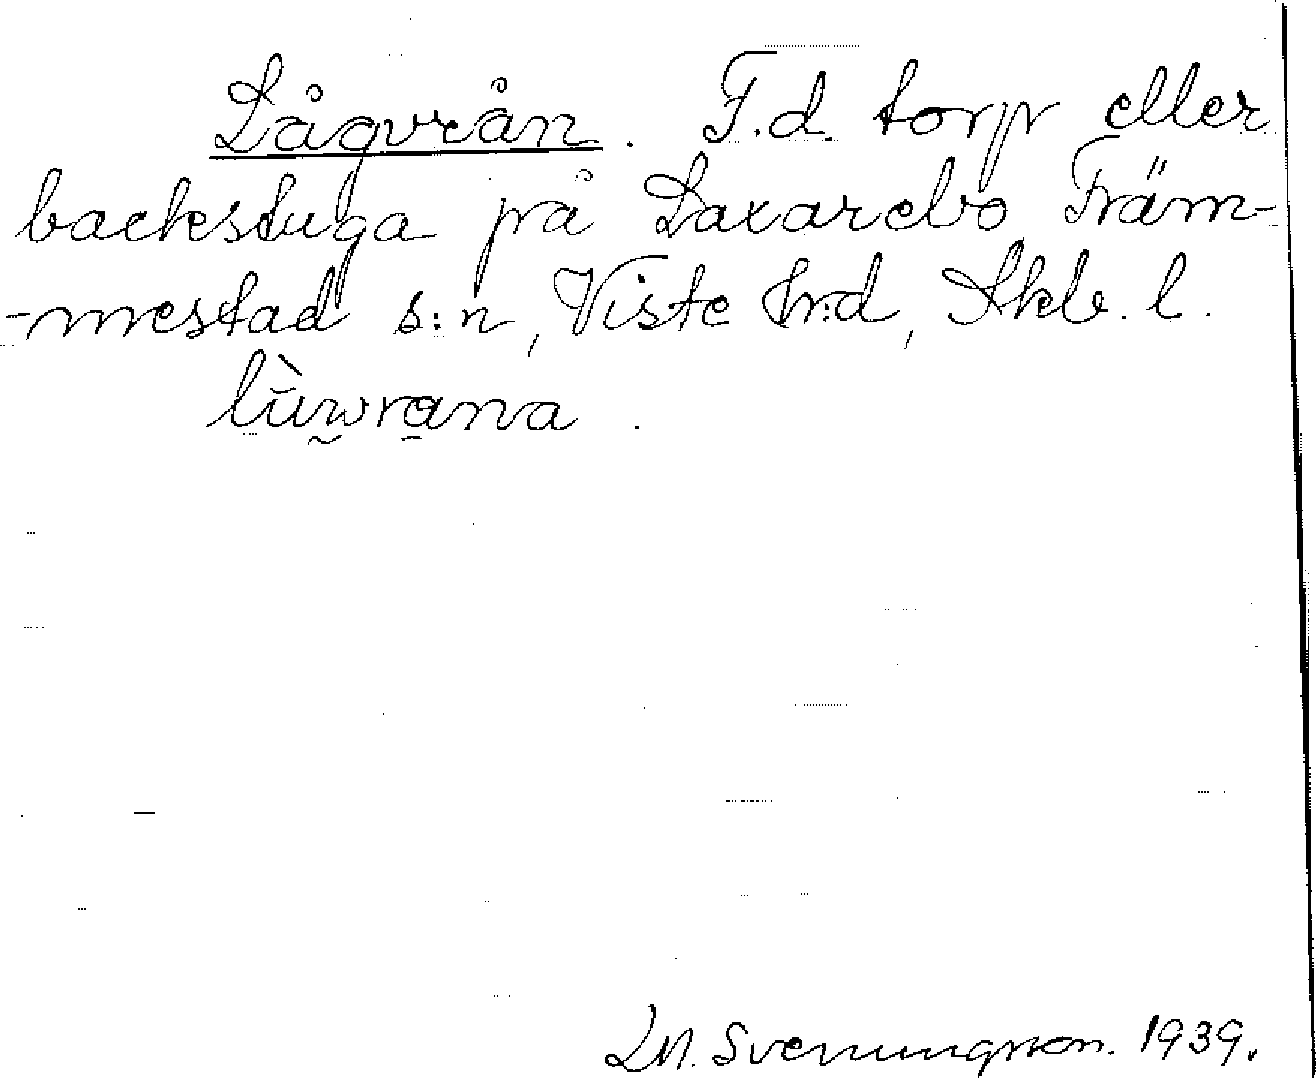 Lågvrån. F.d. torp eller
backstuga på Laxarebo Träm-
-mestad s:n, Viste hr:d, Skb. l.
lùwrana.
M. Svenungsson. 1939.